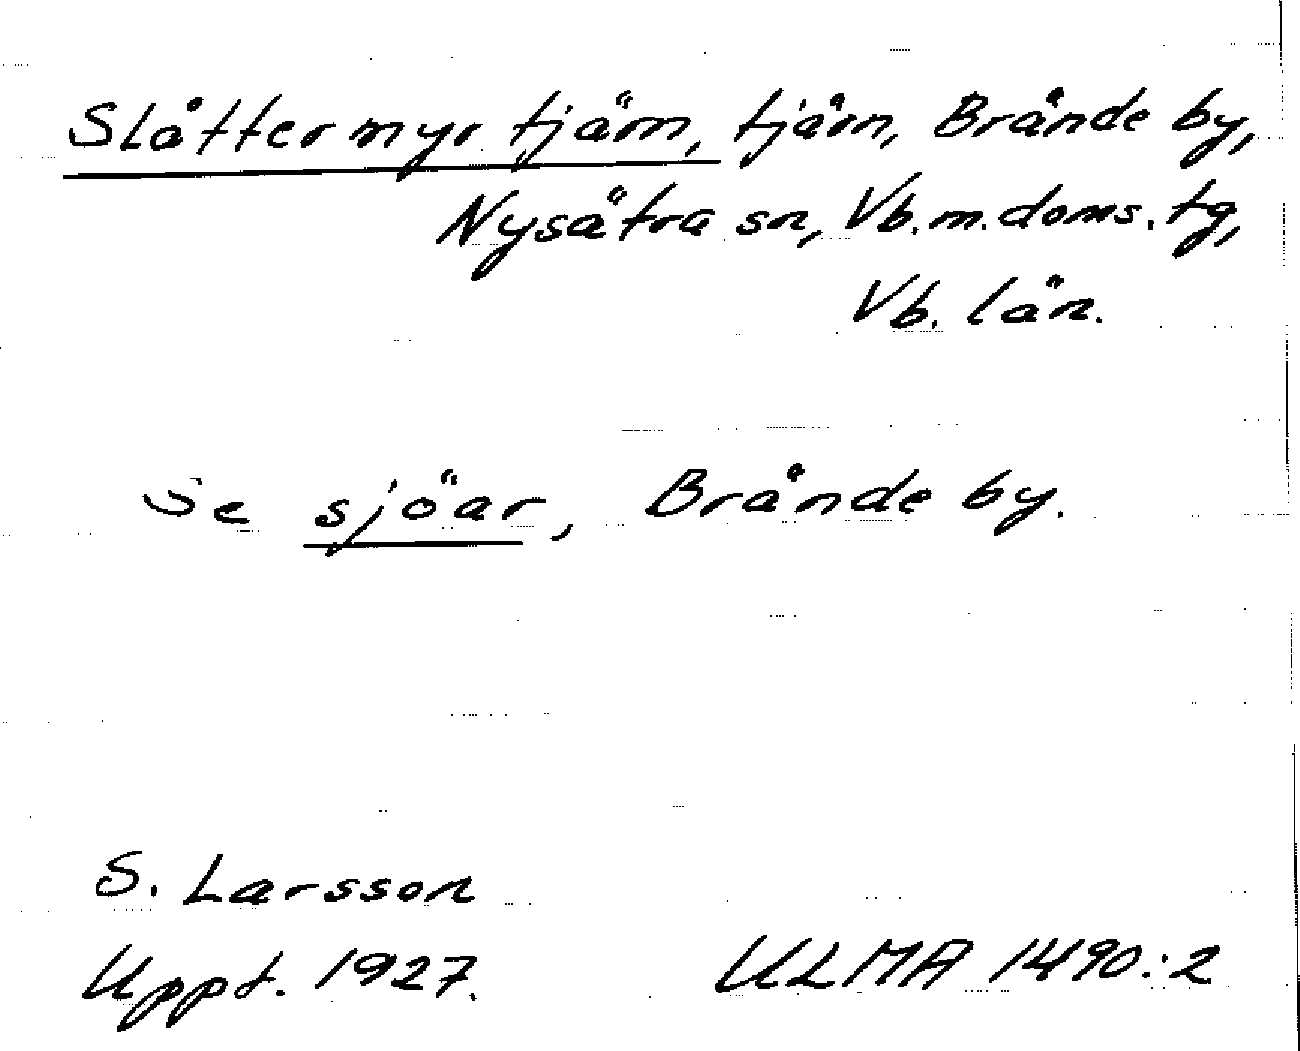 Slåttermyrtjärn, tjärn, Brånde by,
Nysätra sn, Vb.m.doms.tg,
Vb. län.
Se sjöar, Brånde by.
S. Larsson
Uppt. 1927.
ULMA 1490:2